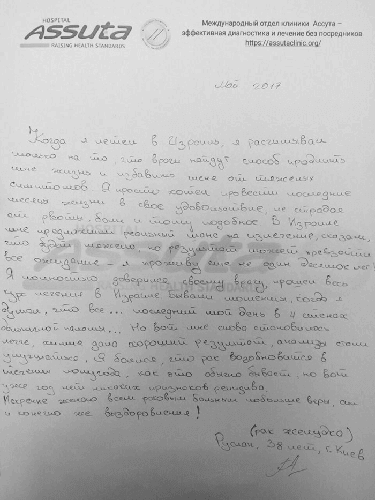 HOSPITAL
Assuta
RAISING HEALTH STANDARDS
Международный отдел клиники Ассута –
эффективная диагностика и лечение без посредников
https://assutaclinic.org/
Май 2017
Когда я летел в Израиль, я рассчитывал
только на то, что врачи найдут способ продлить
мне жизнь и избавить меня от тяжелых
симптомов. Я просто хотел провести последние
месяцы жизни в свое удовольствие, не страдая
от рвоты, боли и тому подобное. В Израиле
мне предложили реальный шанс на излечение, сказали,
что будет тяжело, но результат может превзойти
все ожидания – я проживу еще не один десяток лет.
Я полностью доверился своему врачу, прошел весь
курс лечения. В Израиле бывали моменты, когда я
думал, что все... последний мой день в 4 стенах
больничной палаты... Но вот мне снова становилось
легче, химия дала хороший результат, анализы стали
улучшаться. Я боялся, что рак возобновится в
течении полугода, как это обычно бывает, но вот
уже год нет никаких признаков рецидива.
Искренне желаю всем раковым больным побольше веры, сил
и конечно же выздоровления!
(рак желудка)
Руслан, 38 лет, г. Киев